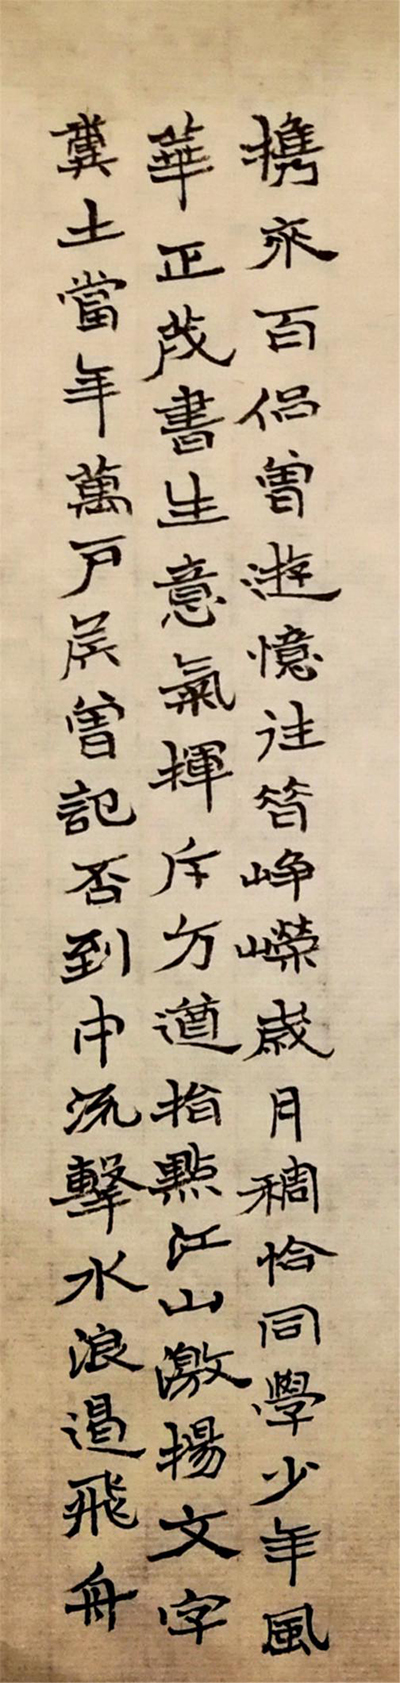 携來百侣曾遊憶往昔崢嶸歲月稠恰同學少年風
華正茂書生意氣揮斥方遒指點江山激揚文字
糞土當年萬户矦曾記否到中流擊水浪遏飛舟